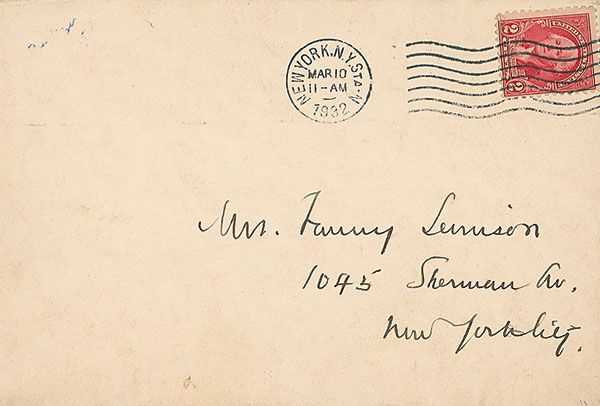 NEW YORK, N.Y. STA. N
MAR 10
11-AM
1932
2
2
Mrs. Fanny
1045 Sherman Av.
New York City.